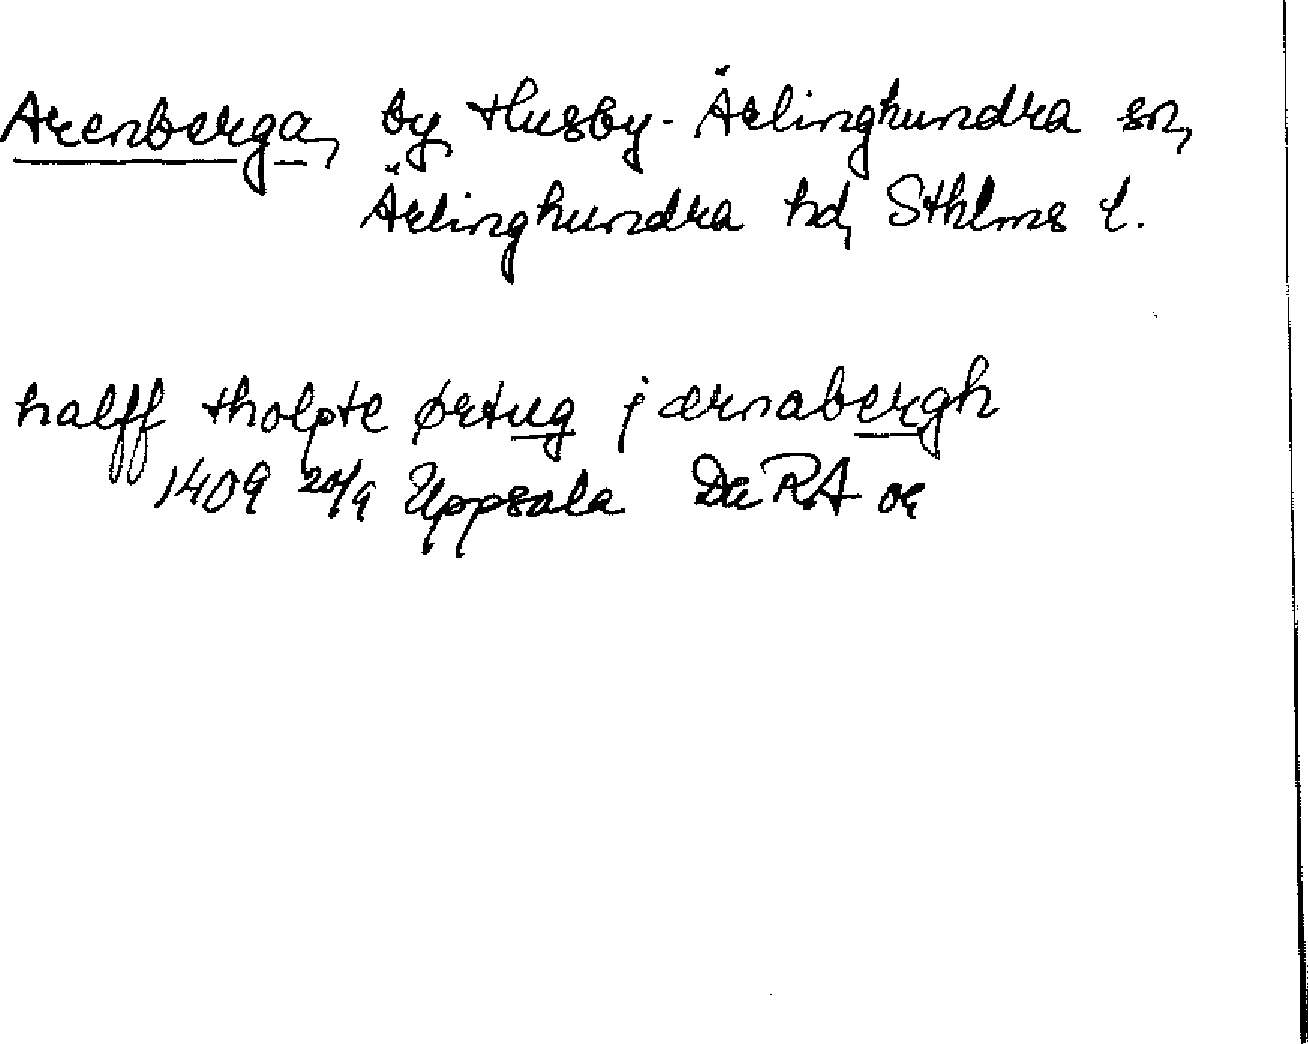 Arenberga, by, Husby-Ärlinghundra sn,
Ärlinghundra hd, Sthlms l.
halff tholpte ørtug j ærnabergh
1409 20/9 Uppsala Da RA or